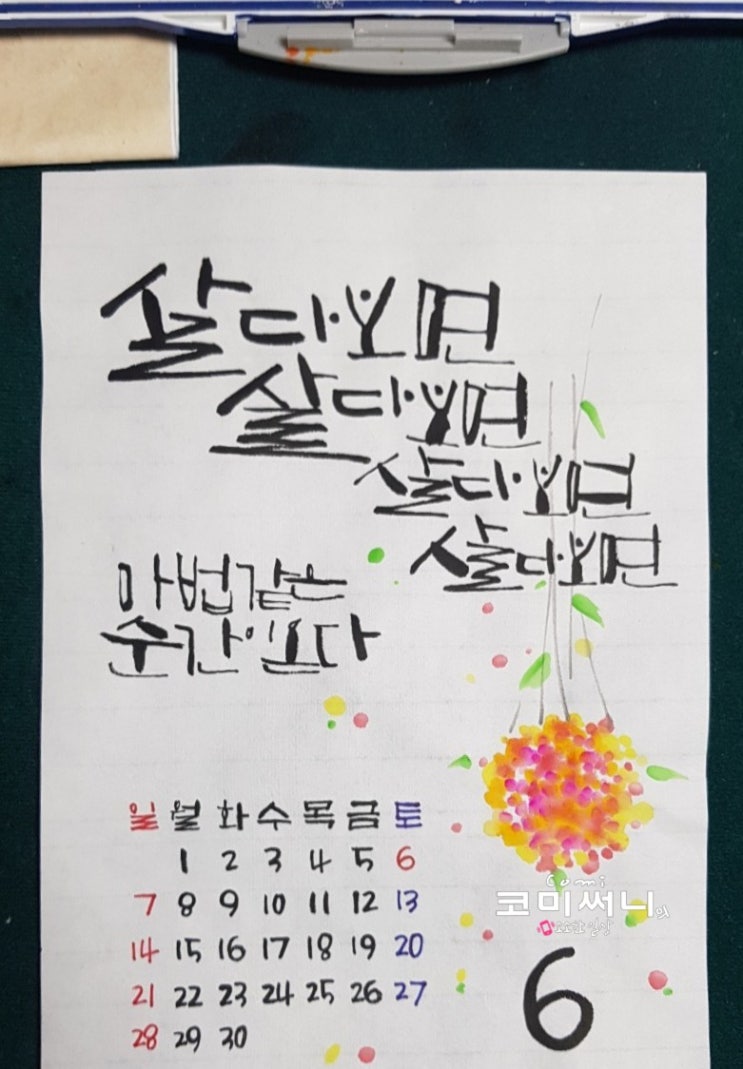 살다보면
살다보면
살다보면
살다보면
마법같은
순간이온다
일 월 화 수 목 금 토
1 2 3 4 5 6
7 8 9 10 11 12 13
14 15 16 17 18 19 20
21 22 23 24 25 26 27
28 29 30
Comi
코미써니의
6